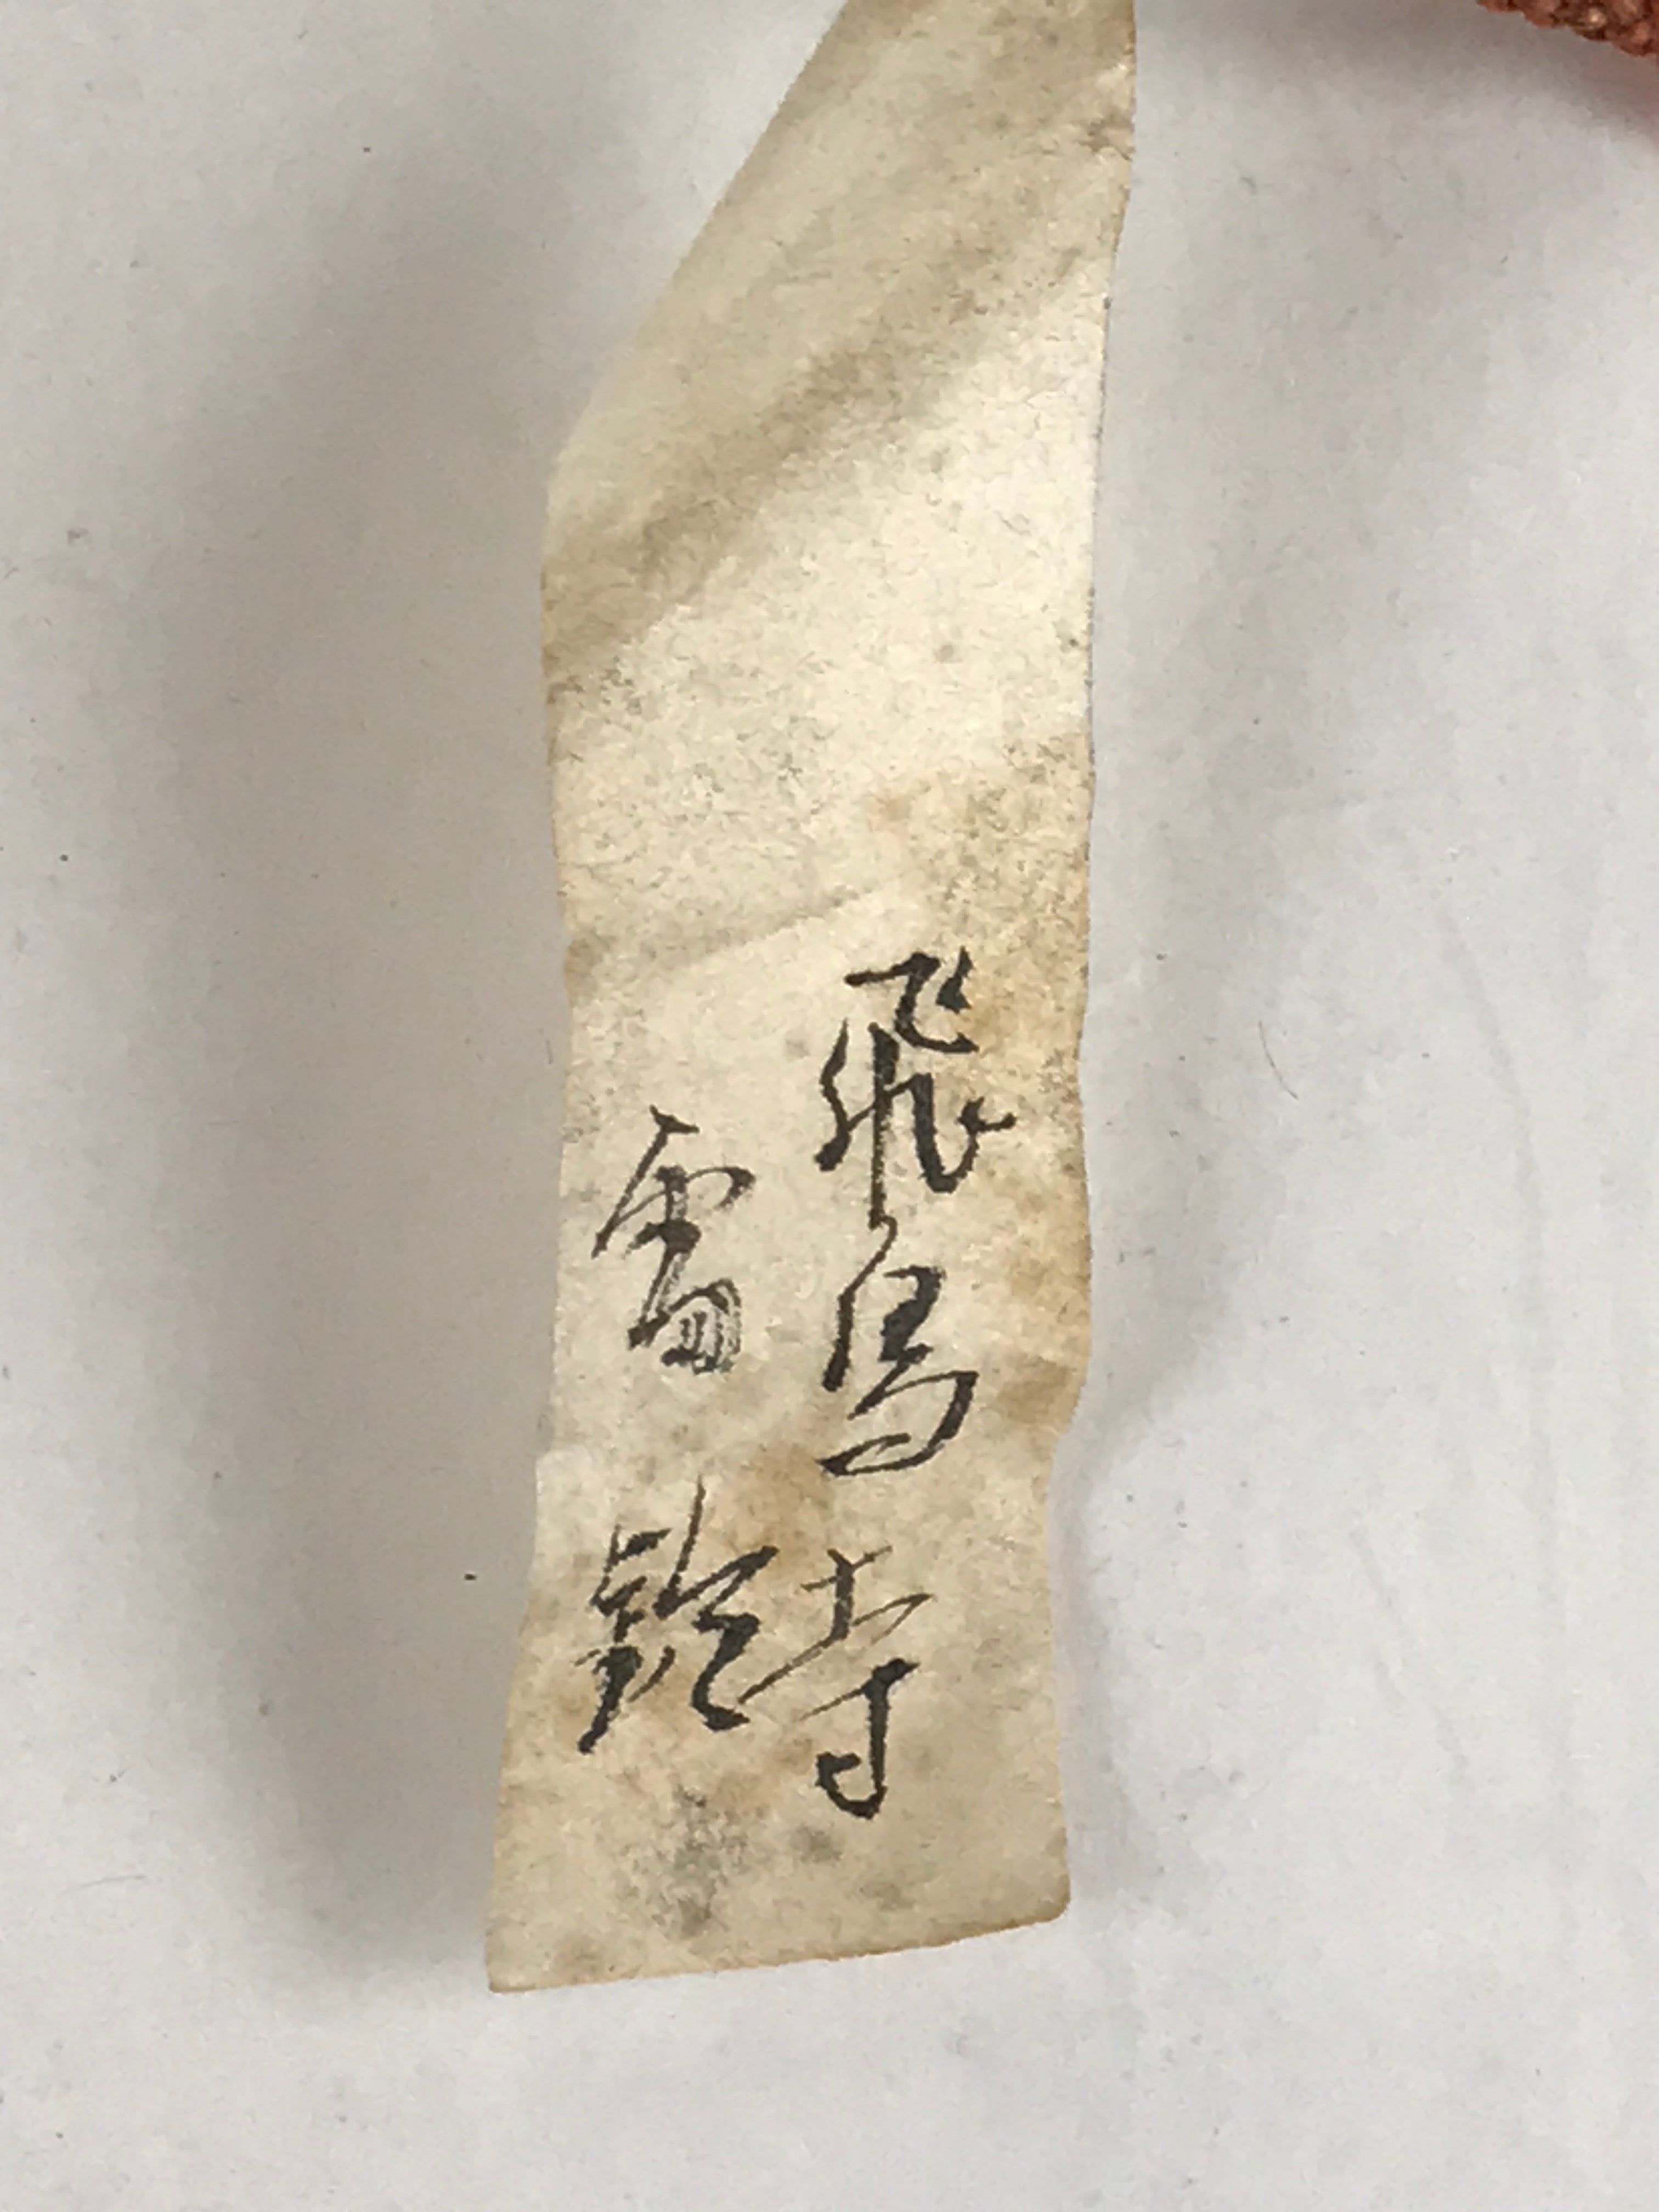 飛鳥寺
雷鈴